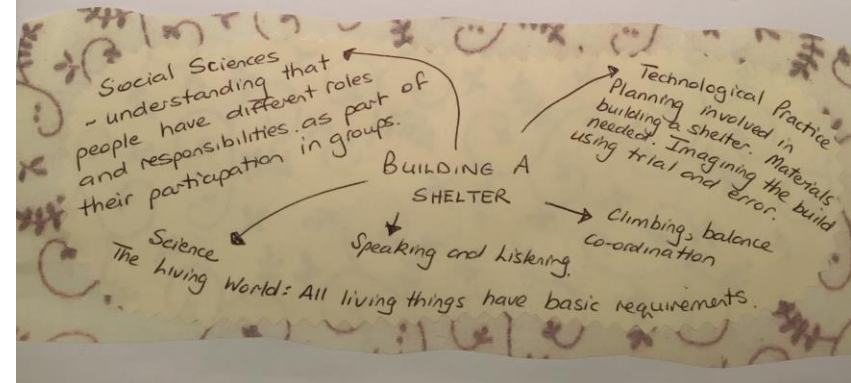 Social Sciences
- understanding that
people have different roles
and responsibilities. as part of
their participation in groups.
Technological Practice
Planning involved in
building a shelter. Materials
needed. Imagining the build
using trial and error.
BUILDING A
SHELTER
Climbing, balance
co-ordination
Speaking and Listening.
Science
The Living World: All living things have basic requirements.